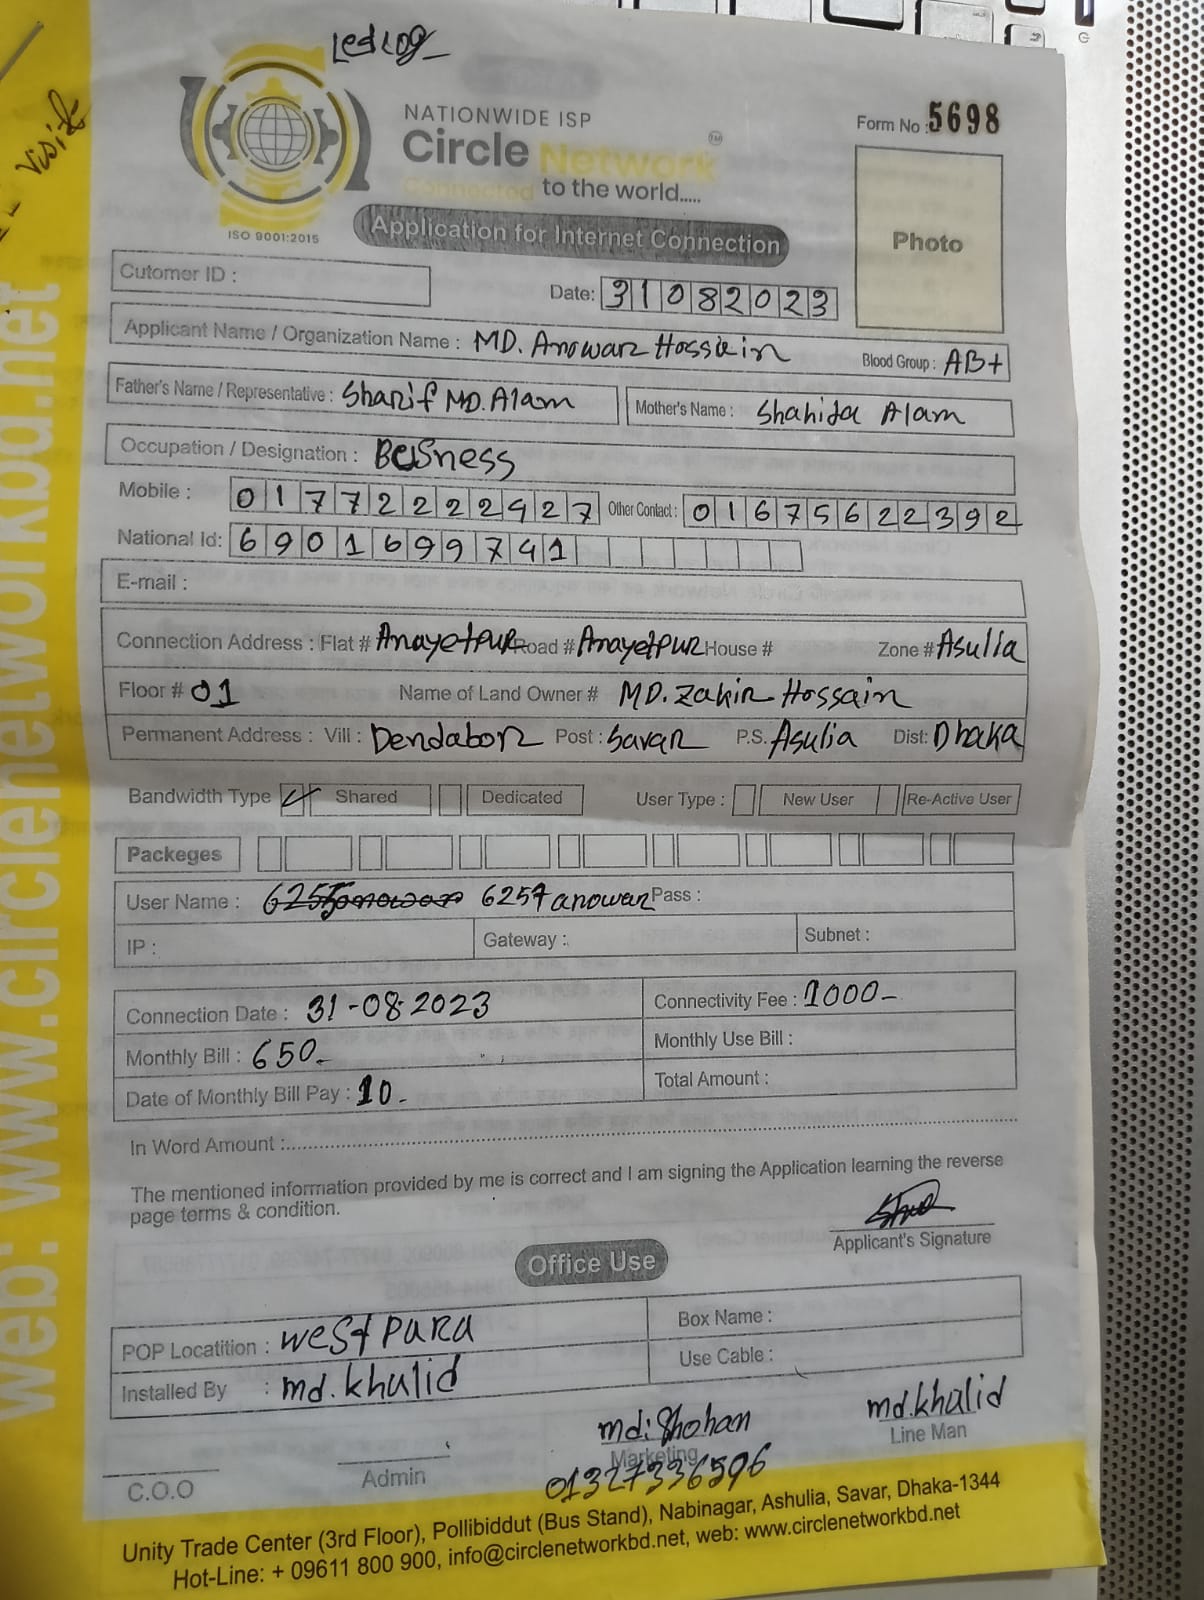 Ledlog
visit
NATIONWIDE ISP
Circle Network TM
Connected to the world.....
ISO 9001:2015
Form No : 5698
Photo
Application for Internet Connection
Cutomer ID :
Date: 31082023
Applicant Name / Organization Name : MD. Anowar Hossain Blood Group : AB+
Father's Name / Representative : Sharif MD. Alam Mother's Name : Shahida Alam
Occupation / Designation : Busness
Mobile : 01772222927 Other Contact : 01675622392
National Id: 6901699741
E-mail :
Connection Address : Flat # Anayetpur Road # Anayetpur House # Zone # Asulia
Floor # 01 Name of Land Owner # MD. Zakir Hossain
Permanent Address : Vill : Dendabor Post : Savar P.S. Asulia Dist: Dhaka
Bandwidth Type ✓ Shared Dedicated User Type : New User Re-Active User
Packeges
User Name : 6257anowar Pass :
IP : Gateway : Subnet :
Connection Date : 31-08-2023 Connectivity Fee : 1000-
Monthly Bill : 650- Monthly Use Bill :
Date of Monthly Bill Pay : 10- Total Amount :
In Word Amount :
The mentioned information provided by me is correct and I am signing the Application learning the reverse
page terms & condition.
Applicant's Signature
Office Use
POP Locatition : west para Box Name :
Installed By : md. khalid Use Cable :
md: Shohan md. khalid
C.O.O Admin Marketing Line Man
01327336596
Unity Trade Center (3rd Floor), Pollibiddut (Bus Stand), Nabinagar, Ashulia, Savar, Dhaka-1344
Hot-Line: + 09611 800 900, info@circlenetworkbd.net, web: www.circlenetworkbd.net
web: www.circlenetworkbd.net